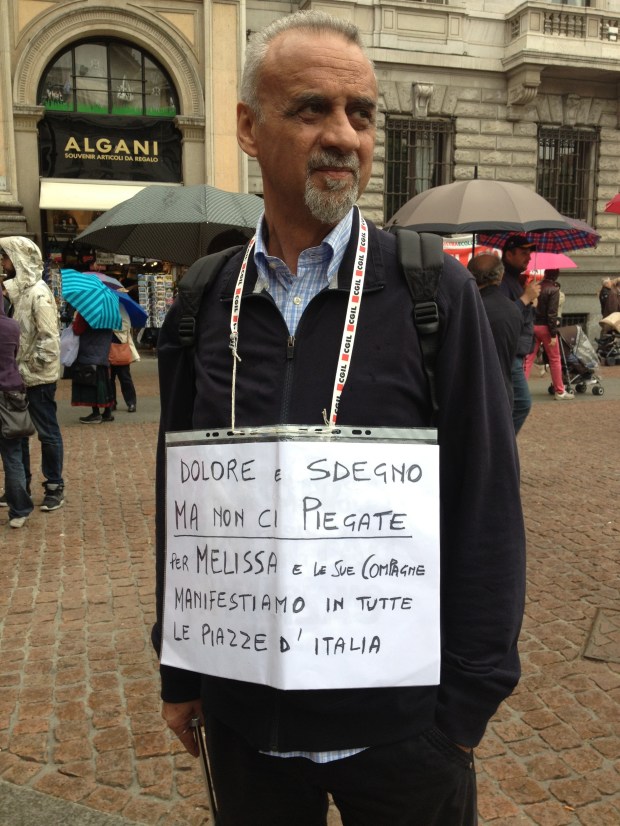 ALGANI
SOUVENIR ARTICOLI DA REGALO
CGIL CGIL CGIL CGIL
DOLORE E SDEGNO
MA NON CI PIEGATE
PER MELISSA E LE SUE COMPAGNE
MANIFESTIAMO IN TUTTE
LE PIAZZE D'ITALIA